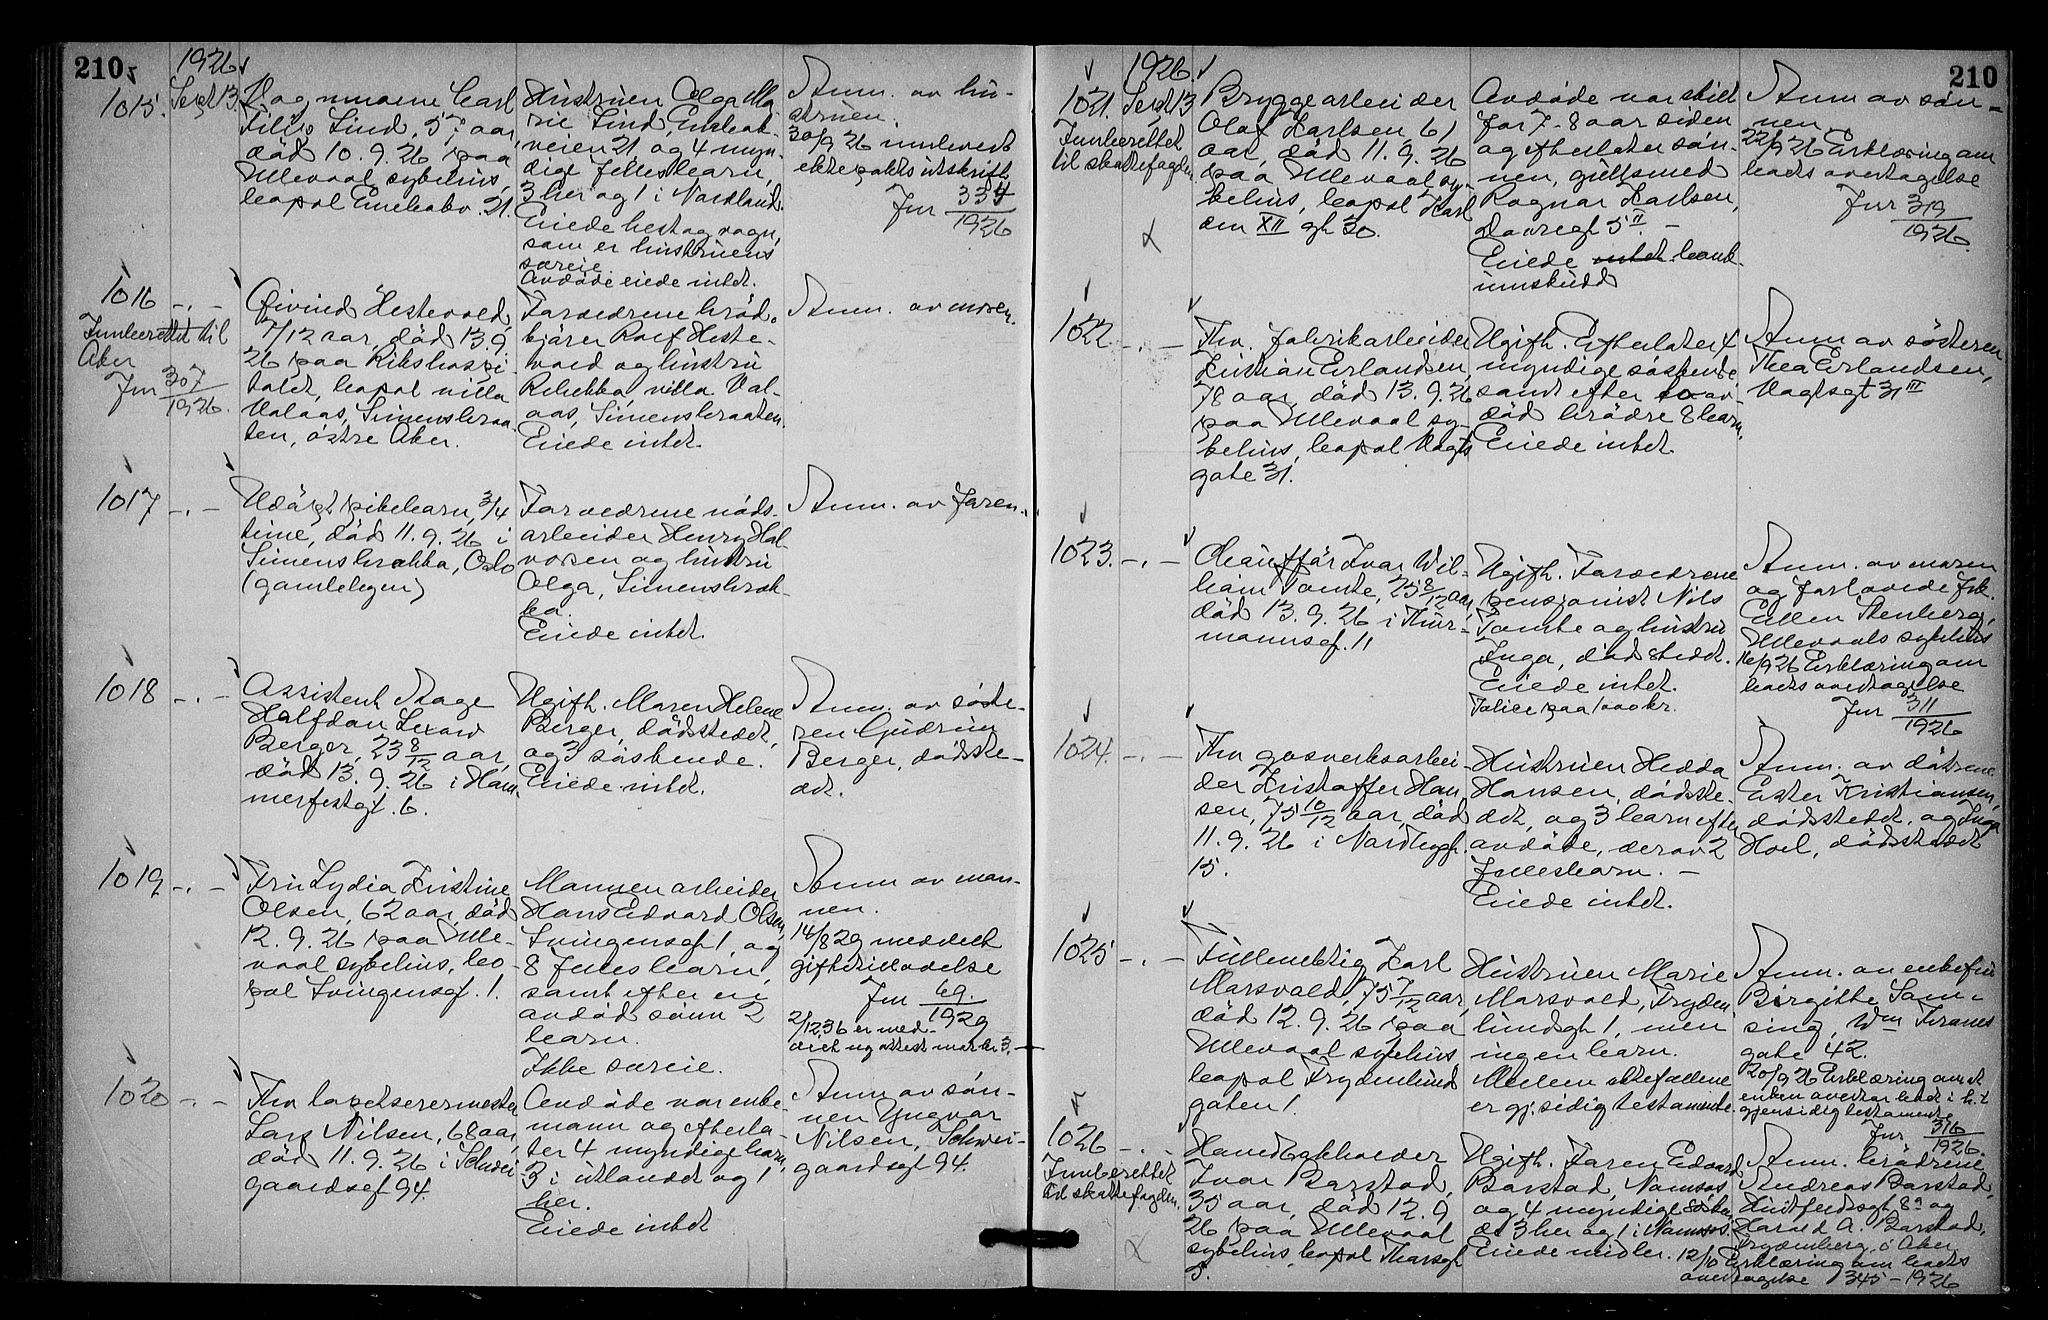 210
1926
1015. Sept 13.
Vognmann Carl
Lind, 57 aar,
død 10. 9. 26 paa
Ullevaal sykehus,
bopæl Enebakv. 21.
Hustruen Olga Ma-
rie Lind, Enebak-
veien 21 og 4 myn-
dige fellesbarn,
3 her og 1 i Nordland.
Eiede hest og vogn,
som er hustruens
særeie.
Avdøde eiede intet.
Anm. av hu-
struen.
30/9 26 innlevert
ektepakts utskrift
Jnr 334/1926
1016 -.-
Innberettet til
Aker
Jnr 307/1926.
Øivind Hestevold,
7/12 aar, død 13. 9.
26 paa Rikshospi-
talet, bopæl villa
Valaas, Simensbraa-
ten, østre Aker.
Forældrene brød-
kjører Rolf Heste-
vold og hustru
Rebekka, villa Val-
aas, Simensbraaten.
Eiede intet.
Anm. av moren.
1017 -.-
Udøpt pikebarn, 3/4
time, død 11. 9. 26 i
Simensbrakka, Oslo
(gamlebyen)
Forældrene nøds-
arbeider Henry Hal-
vorsen og hustru
Olga, Simensbrak-
ka.
Eiede intet.
Anm. av faren.
1018 -.-
Assistent Aage
Halfdan
Berger, 23 8/12 aar,
død 13. 9. 26 i Ham-
merfestgt. 6.
Ugift. Moren Helene
Berger, dødstedet,
og 3 søskende.
Eiede intet.
Anm. av søste-
ren Gudrun
Berger, dødste-
det.
1019 -.-
Fru Lydia Kristine
Olsen, 62 aar, død
12. 9. 26 paa Ulle-
vaal sykehus, bo-
pæl Svingensgt. 1.
Mannen arbeider
Hans Edvard Olsen,
Svingensgt 1, og
8 fellesbarn,
samt efter en
avdød sønn 2
barn.
Ikke særeie.
Anm av man-
nen.
14/8 29 meddelt
gifterilovelse
Jnr 69./1929
2/12 36 er med-
delt ny attest
1020 -.-
Fhv tapetserermester
Lars Nilsen, 68 aar,
død 11. 9. 26 i Schwei-
gaardsgt 94.
Avdøde var enke-
mann og efterla-
ter 4 myndige barn,
3 i utlandet og 1
her.
Eiede intet
Anm av søn-
nen Yngvar
Nilsen, Schwei-
gaardsgt 94.
210
1926.
1021. Sept 13
Innberettet
til skattefogden
Bryggearbeider
Olaf Karlsen 61
aar, død 11. 9. 26
paa Ullevaal sy-
kehus, bopæl Karl
den XII gt 30.
Avdøde var skilt
for 7-8 aar siden
og efterlater søn-
nen, gullsmed
Ragnar Karlsen,
Dovregt 5 II. -
Eiede intet bank-
innskudd
Anm av søn-
nen.
22/9 26 Erklæring om
boets overtagelse
Jnr 319/1926.
1022 -.-
Fhv. fabrikarbeider
Kristian Erlandsen
78 aar, død 13. 9. 26
paa Ullevaal sy-
kehus, bopæl Vogts
gate 31.
Ugift. Efterlater 4
myndige søskende
samt efter to av-
død brødre 8 barn.
Eiede intet.
Anm av søsteren
Thea Erlandsen,
Vogtsgt 31 III
1023. -.-
Chauffør Ivar Wil-
liam Tomte, 25 8/12 aar,
død 13. 9. 26 i Thur-
mannsgt. 11
Ugift. Forældrene
pensjonist Nils
Tomte og hustru
Inga, dødstedet.
Eiede intet.
Police paa 1000 kr.
Anm. av moren
og forlovede frk.
Ellen Stenberg,
Ullevaals sykehus
16/9 26 Erklæring om
boets overtagelse
Jnr 311/1926
1024. -.-
Fhv gasverksarbei-
der Kristoffer Han-
sen, 75 10/12 aar, død
11. 9. 26 i Nordbygt.
15.
Hustruen Hedda
Hansen, dødste-
det, og 3 barn efter
avdøde, derav 2
fellesbarn. -
Eiede intet.
Anm. av døtrene
Ester Kristiansen,
dødstedet, og Inga
Hoel, dødstedet
1025 -.-
Fullmektig Karl
Marsvold, 75 7/12 aar,
død 12. 9. 26 paa
Ullevaal sykehus
bopæl Frydenlund
gaten 1.
Hustruen Marie
Marsvold, Fryden-
lundgt 1, men
ingen barn.
Mellem ektefællene
er gj.sidig testamente.
Anm. av enkefru
Birgitte Sam-
sing, Wm Thranes
gate 42.
20/9 26 Erklæring om at
enken overtar boet i h.t
gjensidig testamente
Jnr. 316/1926.
1026 -.-
Innberettet
til skattefogden.
Haandbokholder
Ivar Barstad,
35 aar, død 12. 9
26 paa Ullevaal
sykehus, bopæl Thorsgt
5.
Ugift. Faren Edvard
Barstad, Namsos
og 4 myndige søsken-
de 3 her og 1 i Namsos.
Eiede midler.
Anm. brødrene
Andreas Barstad,
Huitfeldsgt 8a og
Harald A. Barstad,
Frydenberg, ø Aker
12/10 Erklæring om boets
overtagelse 345-1926